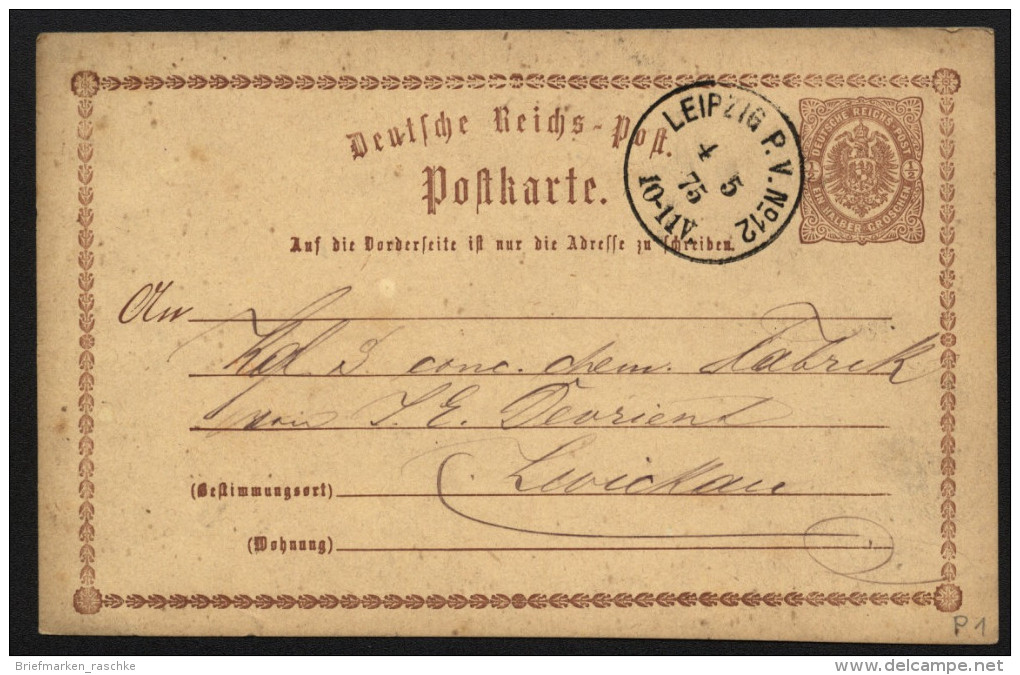 Deutsche Reichs-Post.
Postkarte.
Auf die Vorderseite ist nur die Adresse zu schreiben.
LEIPZIG P.V.No12
4 5
75
10-11V.
DEUTSCHE REICHS-POST
½ ½
EIN HALBER GROSCHEN
An
Kgl S. conc. chem. Fabrik
von J. E. Devrient
Zwickau
(Bestimmungsort)
(Wohnung)
P1
Briefmarken_raschke
delcampe.net